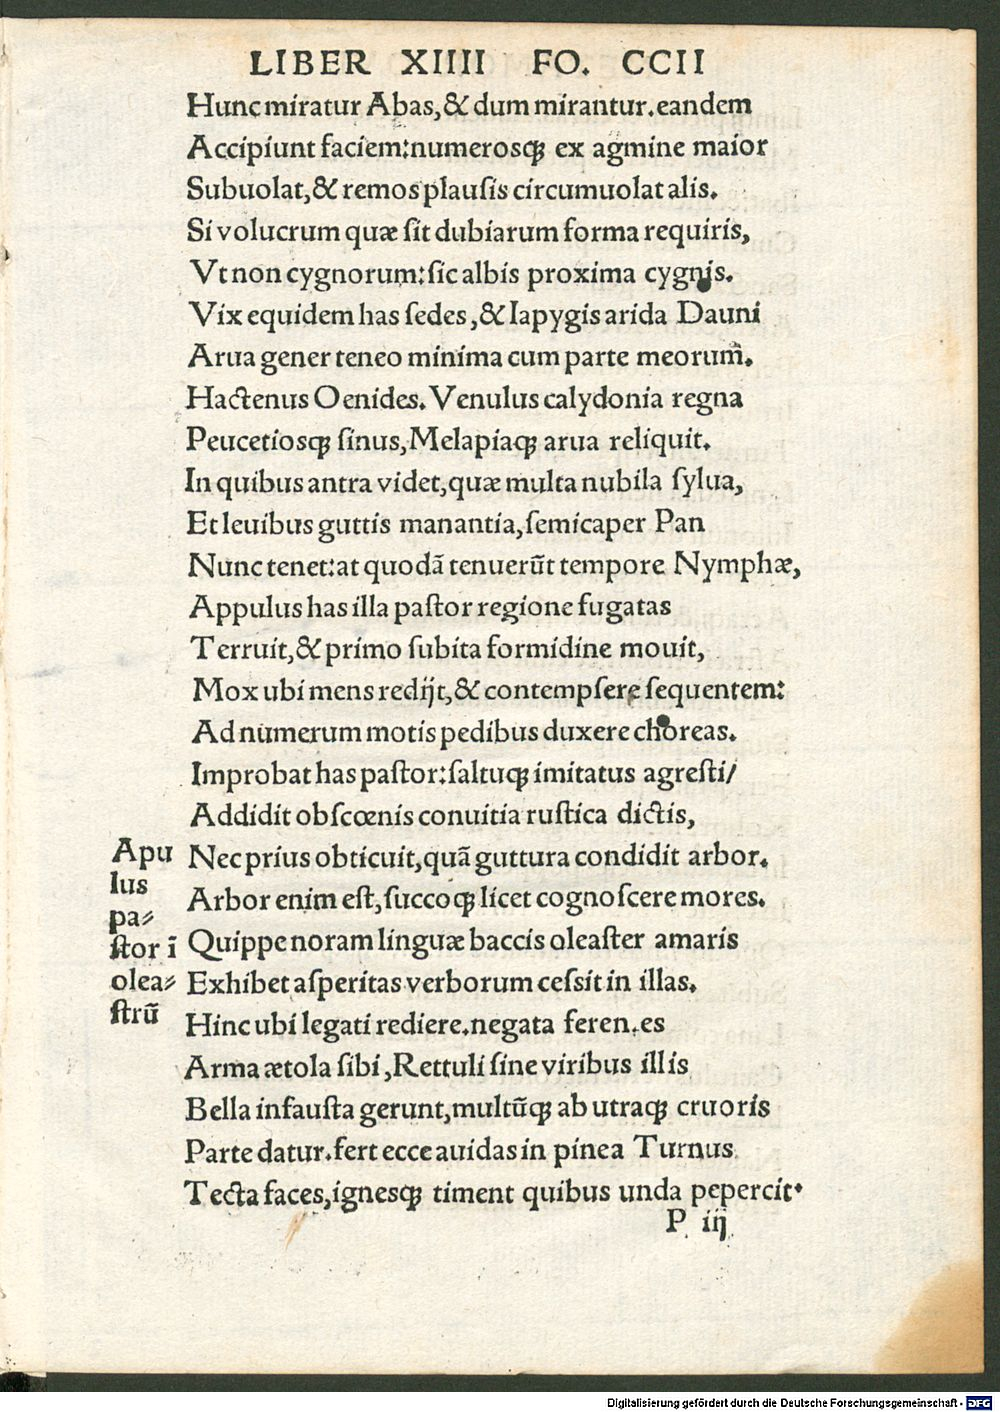 LIBER XIIII FO. CCII
Hunc miratur Abas, & dum mirantur. eandem
Accipiunt faciem: numerosqꝫ ex agmine maior
Subuolat, & remos plausis circumuolat alis.
Si volucrum quæ ſit dubiarum forma requiris,
Vt non cygnorum: ſic albis proxima cygnis.
Vix equidem has ſedes, & Iapygis arida Dauni
Arua gener teneo minima cum parte meorum.
Hactenus Oenides. Venulus calydonia regna
Peucetiosqꝫ ſinus, Melapiaqꝫ arua reliquit.
In quibus antra videt, quæ multa nubila ſylua,
Et leuibus guttis manantia, ſemicaper Pan
Nunc tenet: at quodã tenuerũt tempore Nymphæ,
Appulus has illa paſtor regione fugatas
Terruit, & primo ſubita formidine mouit,
Mox ubi mens redijt, & contempſere ſequentem:
Ad numerum motis pedibus duxere choreas.
Improbat has paſtor: ſaltuqꝫ imitatus agreſti/
Addidit obſcœnis conuitia ruſtica dictis,
Nec prius obticuit, quã guttura condidit arbor.
Arbor enim eſt, ſuccoqꝫ licet cognoſcere mores.
Quippe noram linguæ baccis oleaſter amaris
Exhibet aſperitas verborum ceſſit in illas.
Hinc ubi legati rediere. negata feren.es
Arma ætola ſibi, Rettuli ſine viribus illis
Bella infauſta gerunt, multũqꝫ ab utraqꝫ cruoris
Parte datur. fert ecce auidas in pinea Turnus
Tecta faces, ignesqꝫ timent quibus unda pepercit.
P iij
Apu
lus
pa⸗
ſtor ĩ
olea⸗
ſtrũ
Digitalisierung gefördert durch die Deutsche Forschungsgemeinschaft - DFG